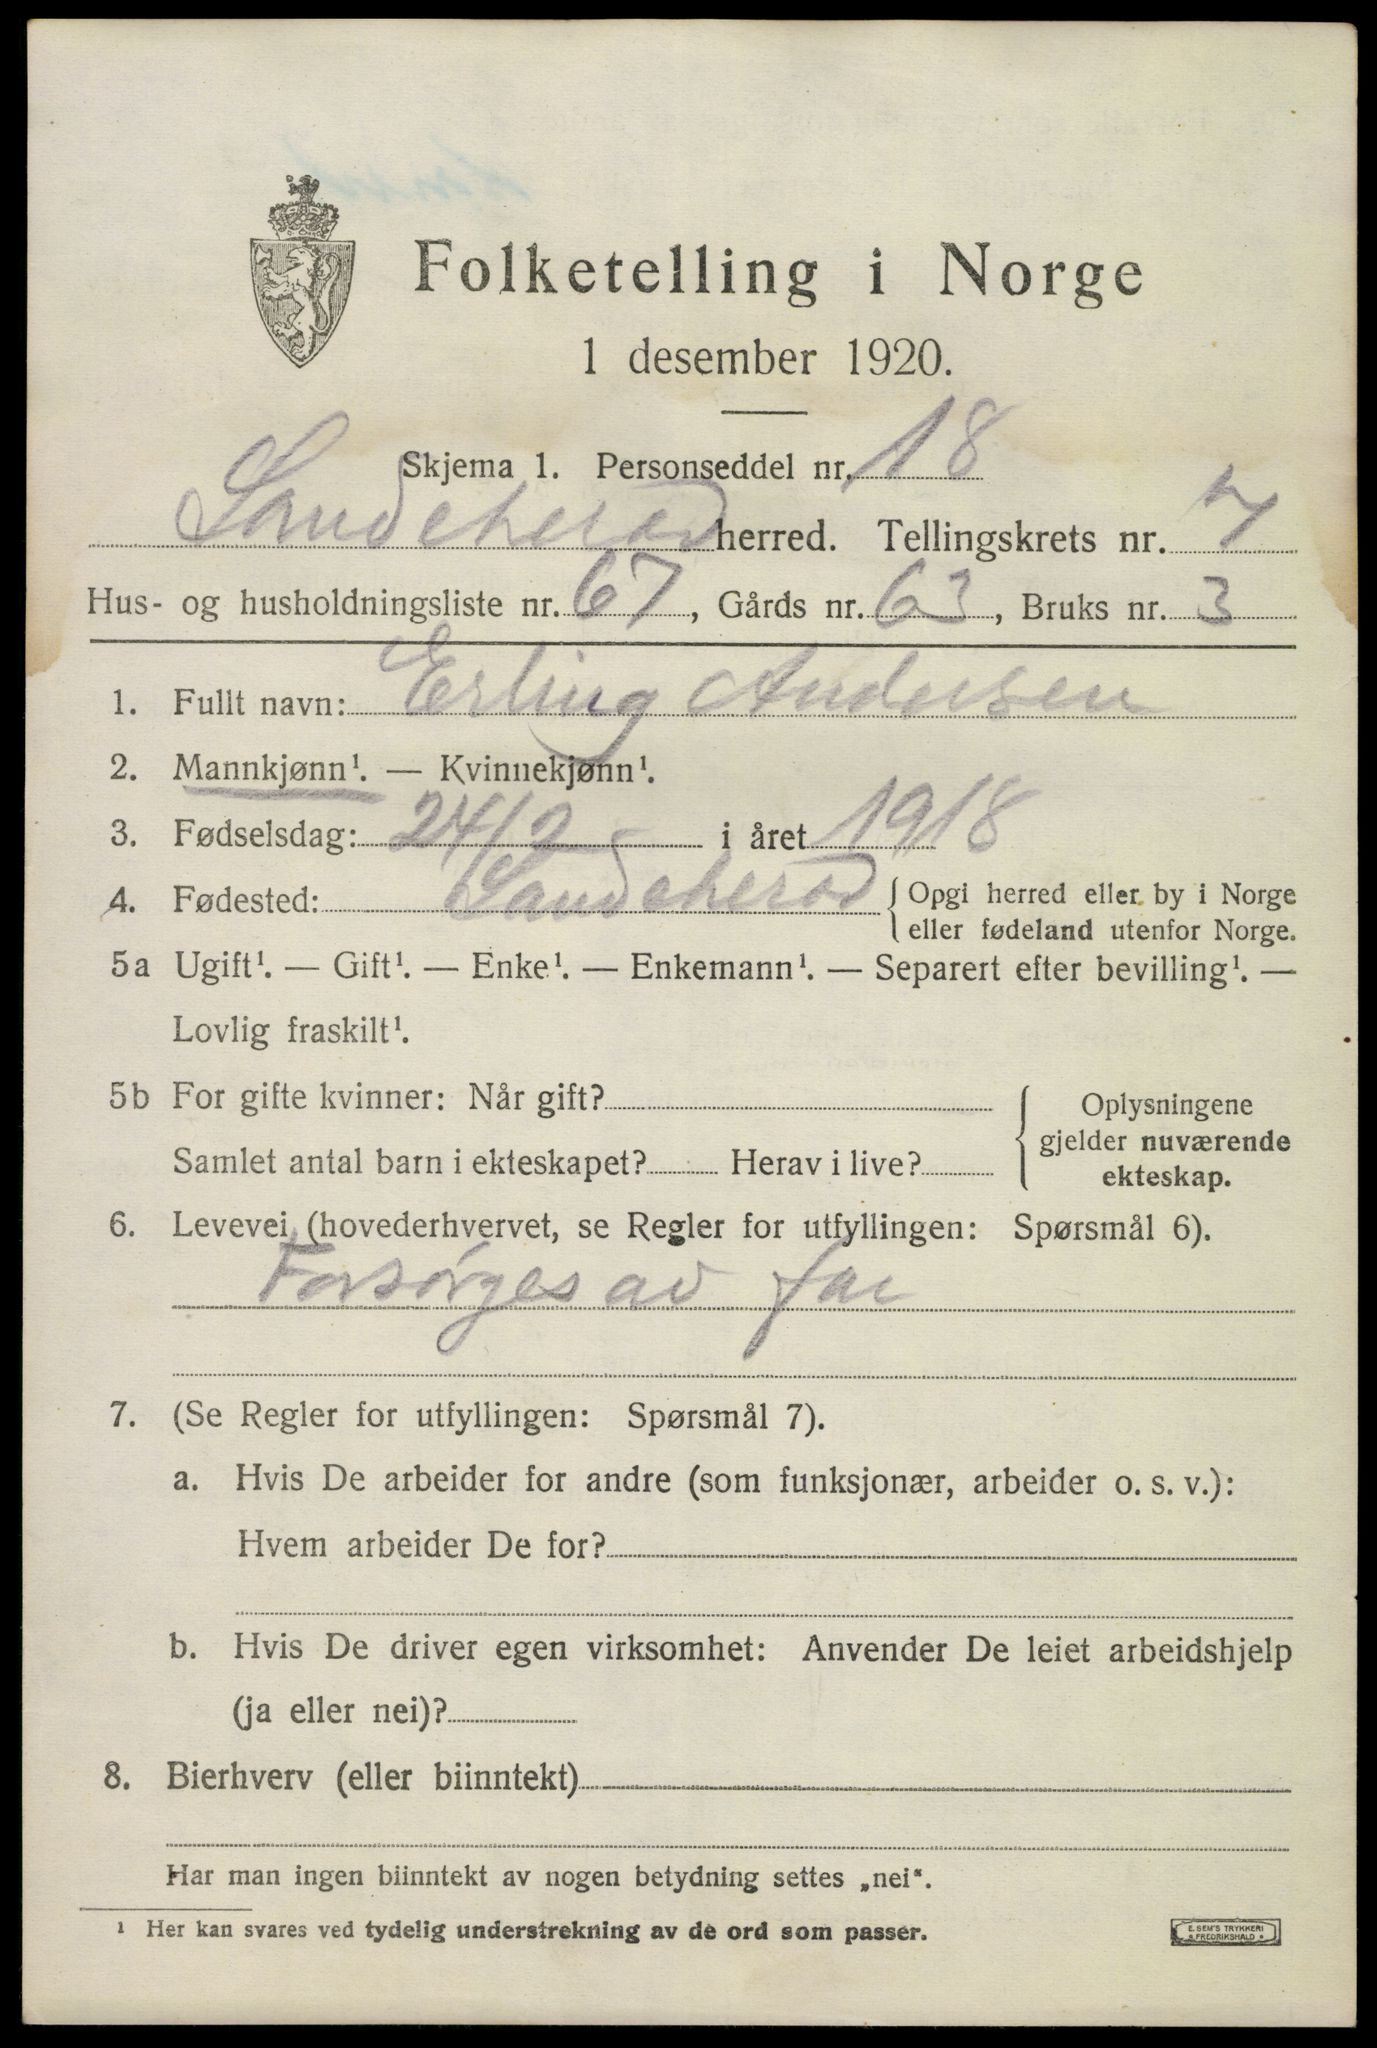 Folketelling i Norge
1 desember 1920.
Skjema 1. Personseddel nr. 18
Sandeherad herred. Tellingskrets nr. 7
Hus- og husholdningsliste nr. 67, Gårds nr. 63, Bruks nr. 3
1. Fullt navn: Erling Andersen
2. Mannkjønn¹. — Kvinnekjønn¹.
3. Fødselsdag: 24/2 - i året 1918
4. Fødested: Sandeherad { Opgi herred eller by i Norge
eller fødeland utenfor Norge.
5a Ugift¹. — Gift¹. — Enke¹. — Enkemann¹. — Separert efter bevilling¹. —
Lovlig fraskilt¹.
5b For gifte kvinner: Når gift? { Oplysningene
gjelder nuværende
Samlet antal barn i ekteskapet? Herav i live? ekteskap.
6. Levevei (hovederhvervet, se Regler for utfyllingen: Spørsmål 6).
Forsørges av far
7. (Se Regler for utfyllingen: Spørsmål 7).
a. Hvis De arbeider for andre (som funksjonær, arbeider o. s. v.):
Hvem arbeider De for?
b. Hvis De driver egen virksomhet: Anvender De leiet arbeidshjelp
(ja eller nei)?
8. Bierhverv (eller biinntekt)
Har man ingen biinntekt av nogen betydning settes „nei“.
¹ Her kan svares ved tydelig understrekning av de ord som passer.
E. SEM'S TRYKKERI
FREDRIKSHALD